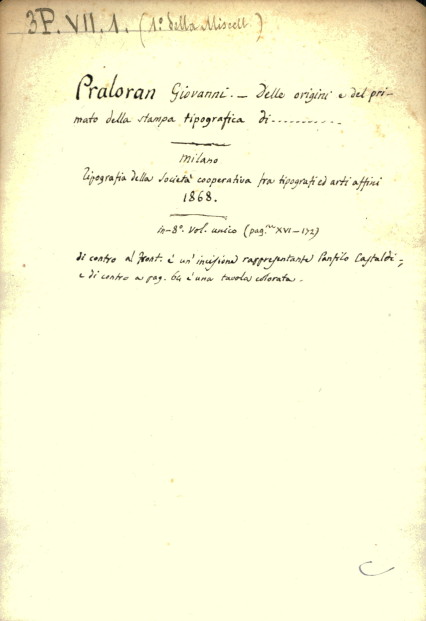 3P. VII. 1. (1º della Miscell.)
Praloran Giovanni. — Delle origini e del pri-
mato della stampa tipografica di----------
Milano
Tipografia della Società cooperativa fra tipografi ed arti affini
1868.
in-8º. Vol. unico (pag.ne XVI-172)
di contro al front. è un' incisione rappresentante Panfilo Castaldi;
e di contro a pag. 64 è una tavola colorata.